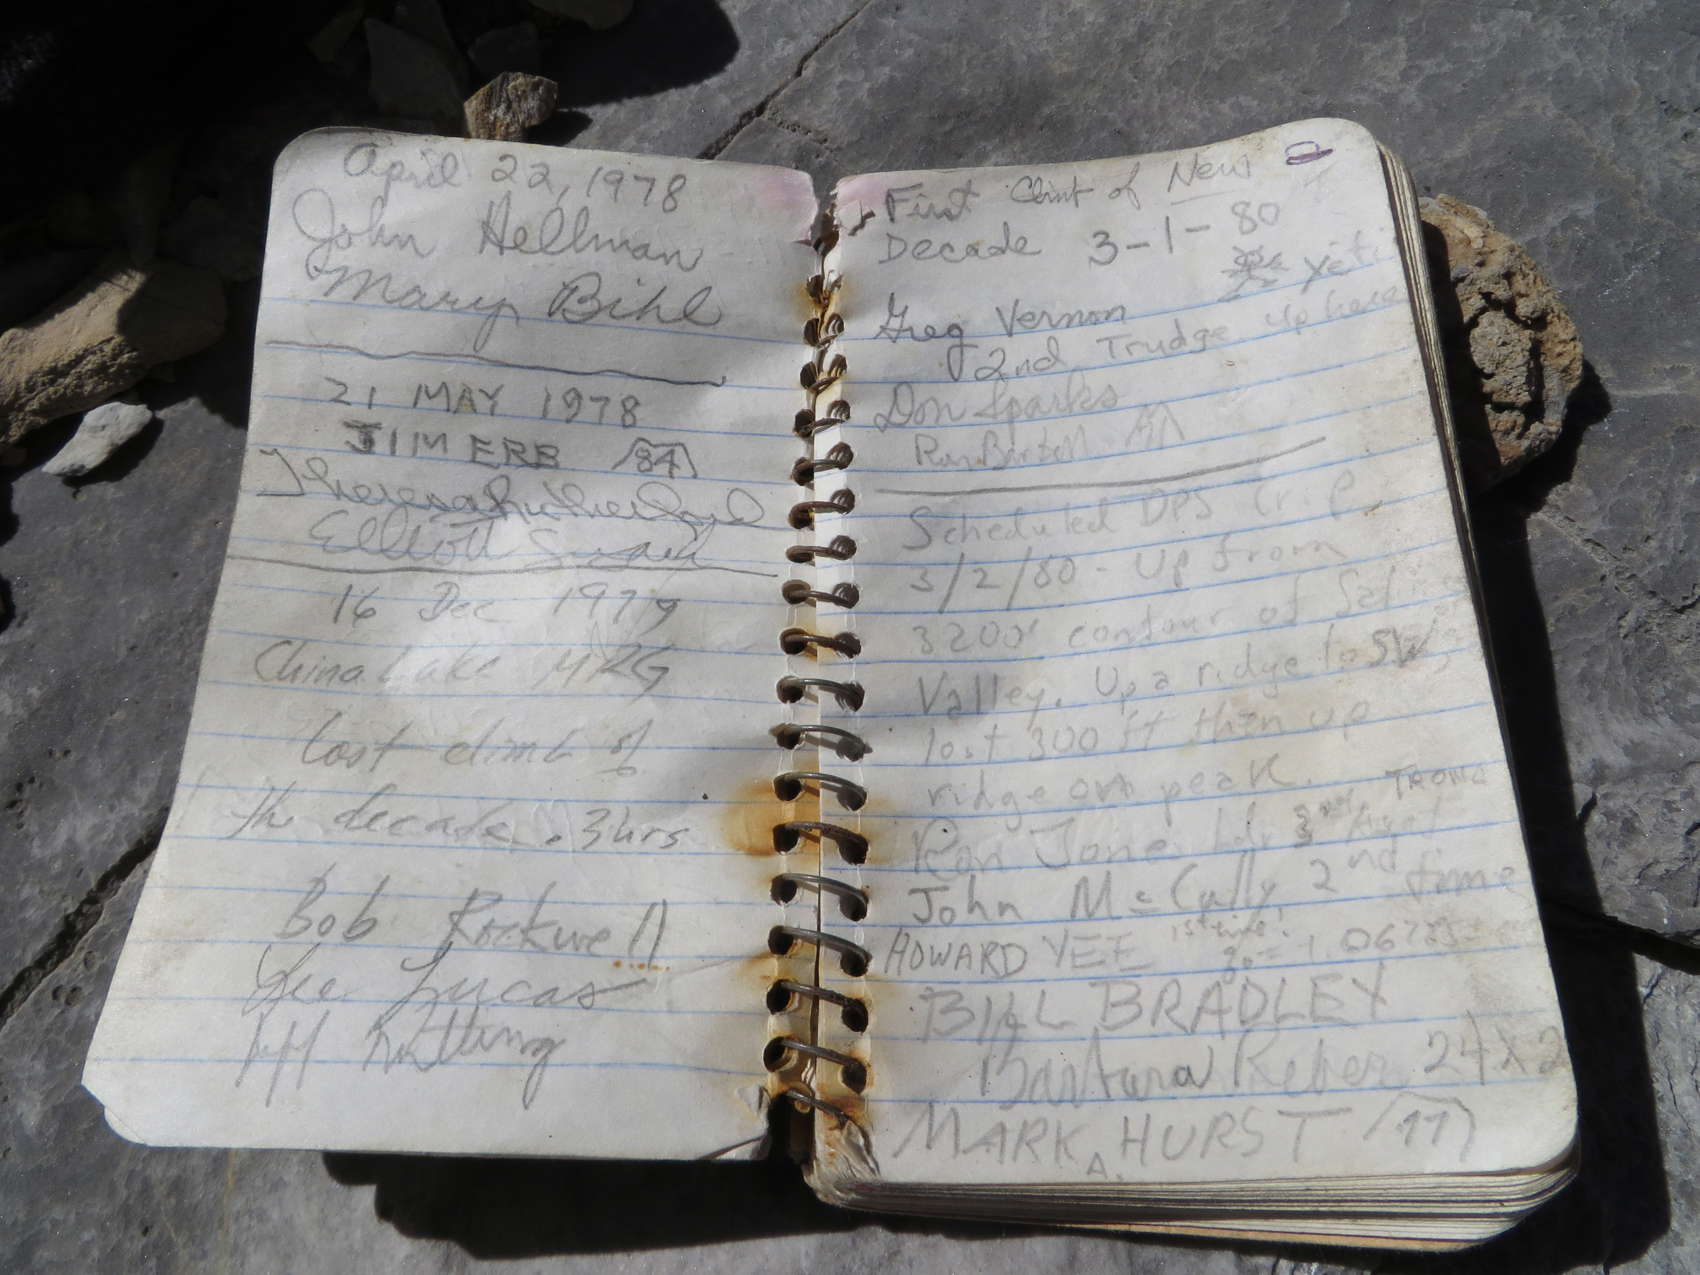 April 22, 1978
John Hellman
Mary Bihl
21 MAY 1978
JIM ERB 84
Theresa Rutherford
Elliott
16 Dec 1979
China Lake MRG
Last climb of
the decade. 3hrs
Bob Rockwell
Lee Lucas
Nutting
First Climb of New
Decade 3-1-80
Yeti
Greg Vernon
2nd Trudge up here
Don Sparks
Ron
Scheduled DPS trip
3/2/80 - Up from
3200' contour of
Valley. Up a ridge to SW,
lost 300 ft then up
ridge on peak.
Ron Jones
John McCully 2nd time
HOWARD YEE 1st time!
BILL BRADLEY
Barbara Reber 24X2
MARK A. HURST 77